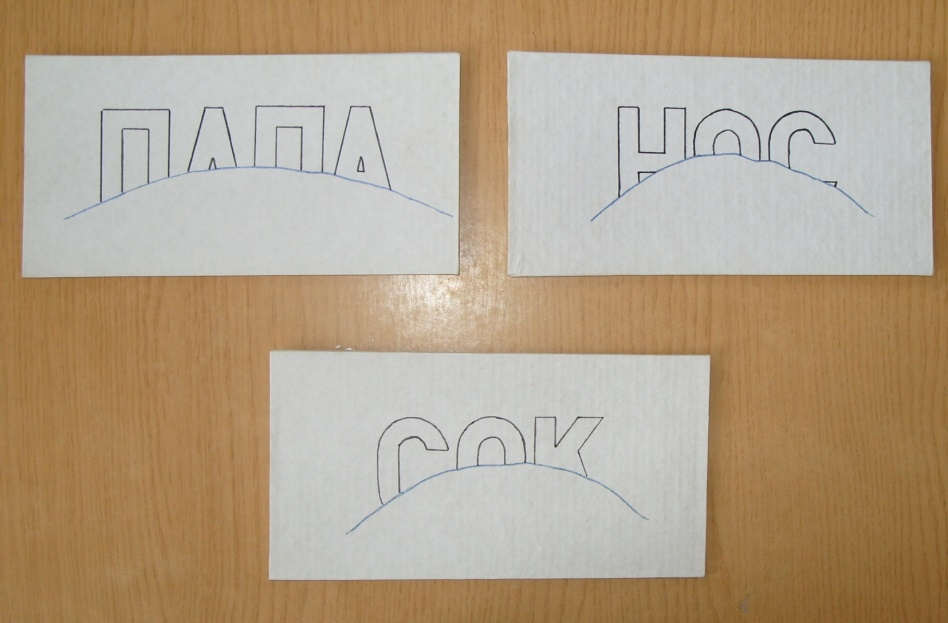 ПАПА
НОС
СОК